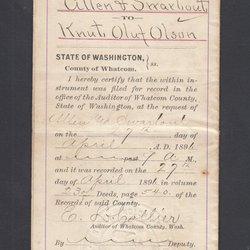 Allen F Swartout
TO
Knut Oluf Olson
STATE OF WASHINGTON,
County of Whatcom. } ss.
I hereby certify that the within in-
strument was filed for record in the
office of the Auditor of Whatcom County,
State of Washington, at the request of
Swartout
on the 27th day of
April A. D. 1896
at past 9 A M.,
and it was recorded on the 27th
day of April 1896 in volume
Deeds, page 540 of the
Records of said County.
Collier
Auditor of Whatcom County, Wash.
By Deputy.